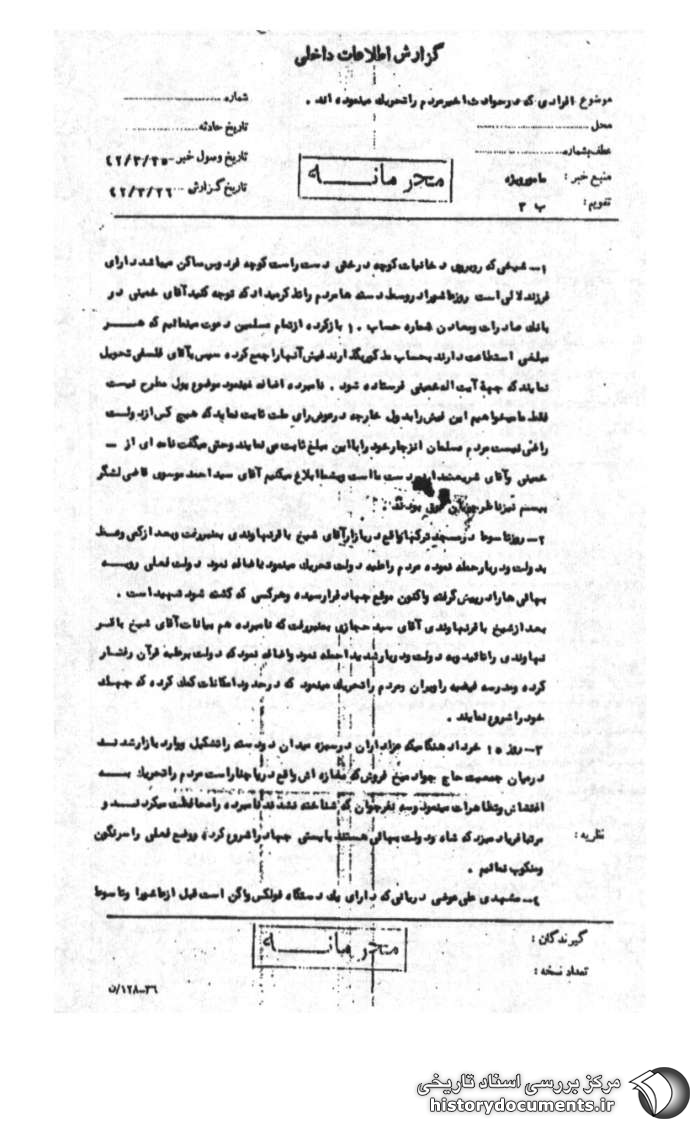 گزارش اطلاعات داخلی
موضوع افرادی که در حوادث اخیر مردم را تحریک مینموده اند .
شماره
محل
تاریخ حادثه
عطف بشماره
تاریخ وصول خبر ۴۲/۳/۲۵
منبع خبر : مامور ویژه
تاریخ گزارش ۴۲/۳/۲۶
تقویم : ب ۲
محرمانه
۱ــ شیخی که روبروی دخانیات کوچه درختی دست راست کوچه فردوس ساکن میباشد دارای
فرزند لالی است روز عاشورا در وسط دسته ها مردم را تذکر میداد که توجه کنید آقای خمینی در
بانک صادرات ومعادن شماره حساب ۱۰ باز کرده از تمام مسلمین دعوت مینمائیم که هر
مبلغی استطاعت دارند بحساب مذکور بگذارند فیش آنها را جمع کرده سپس بآقای فلسفی تحویل
نمایند که جهة آیت اله خمینی فرستاده شود . نامبرده اضافه مینمود موضوع پول مطرح نیست
فقط ما میخواهیم این فیش را بدول خارجه در عوض رای ملت ثابت نماید که هیچ کس از دولت
راضی نیست مردم مسلمان انزجار خود را با این مبلغ ثابت می نمایند وحتی میگفت نامه ای از ــ
خمینی وآقای شریعتمداری در دست ما است وبشما ابلاغ میکنیم آقای سید احمد موسوی قاضی لشگر
بیستم نیز ناظر جریان فوق بودند .
۲ــ روز تاسوعا در مسجد ترکها واقع در بازار آقای شیخ باقر نهاوندی بمنبر رفت وبعد از کمی وعظ
بدولت ودربار حمله نموده مردم را علیه دولت تحریک مینمود باضافه نمود دولت فعلی رویه
بهائی ها را در پیش گرفته واکنون موقع جهاد فرا رسیده وهر کسی که کشته شود شهید است .
بعد از شیخ باقر نهاوندی آقای سید حجازی بمنبر رفت که نامبرده هم بیانات آقای شیخ باقر
نهاوندی را تائید وبه دولت ودربار شدیدا حمله نمود واضافه نمود که دولت بر علیه قرآن رفتار
کرده ومدرسه فیضیه را ویران ومردم را تحریک مینمود که در حدود امکانات کمک کرده که جهاد
خود را شروع نمایند .
۳ــ روز ۱۵ خرداد هنگامیکه عزاداران در سبزه میدان دو دسته را تشکیل ووارد بازار شدند
در میان جمعیت حاج جواد میخ فروش که مغازه اش واقع در پاچنار است مردم را تحریک به
اغتشاش وتظاهرات مینمود وسه نفر جوان که شناخته نشدند نامبرده را محافظت میکردند و
نظریه :
مرتبا فریاد میزد که شاه ودولت بهائی هستند بایستی جهاد را شروع کرده ووضع فعلی را سرنگون
ومنکوب نمائیم .
۴ــ مشهدی علی عوضی دربانی که دارای یک دستگاه فولکس واگن است قبل از عاشورا وتاسوعا
گیرندگان :
محرمانه
تعداد نسخه :
۳۶ــ۱۲۸/ن
مرکز بررسی اسناد تاریخی
historydocuments.ir